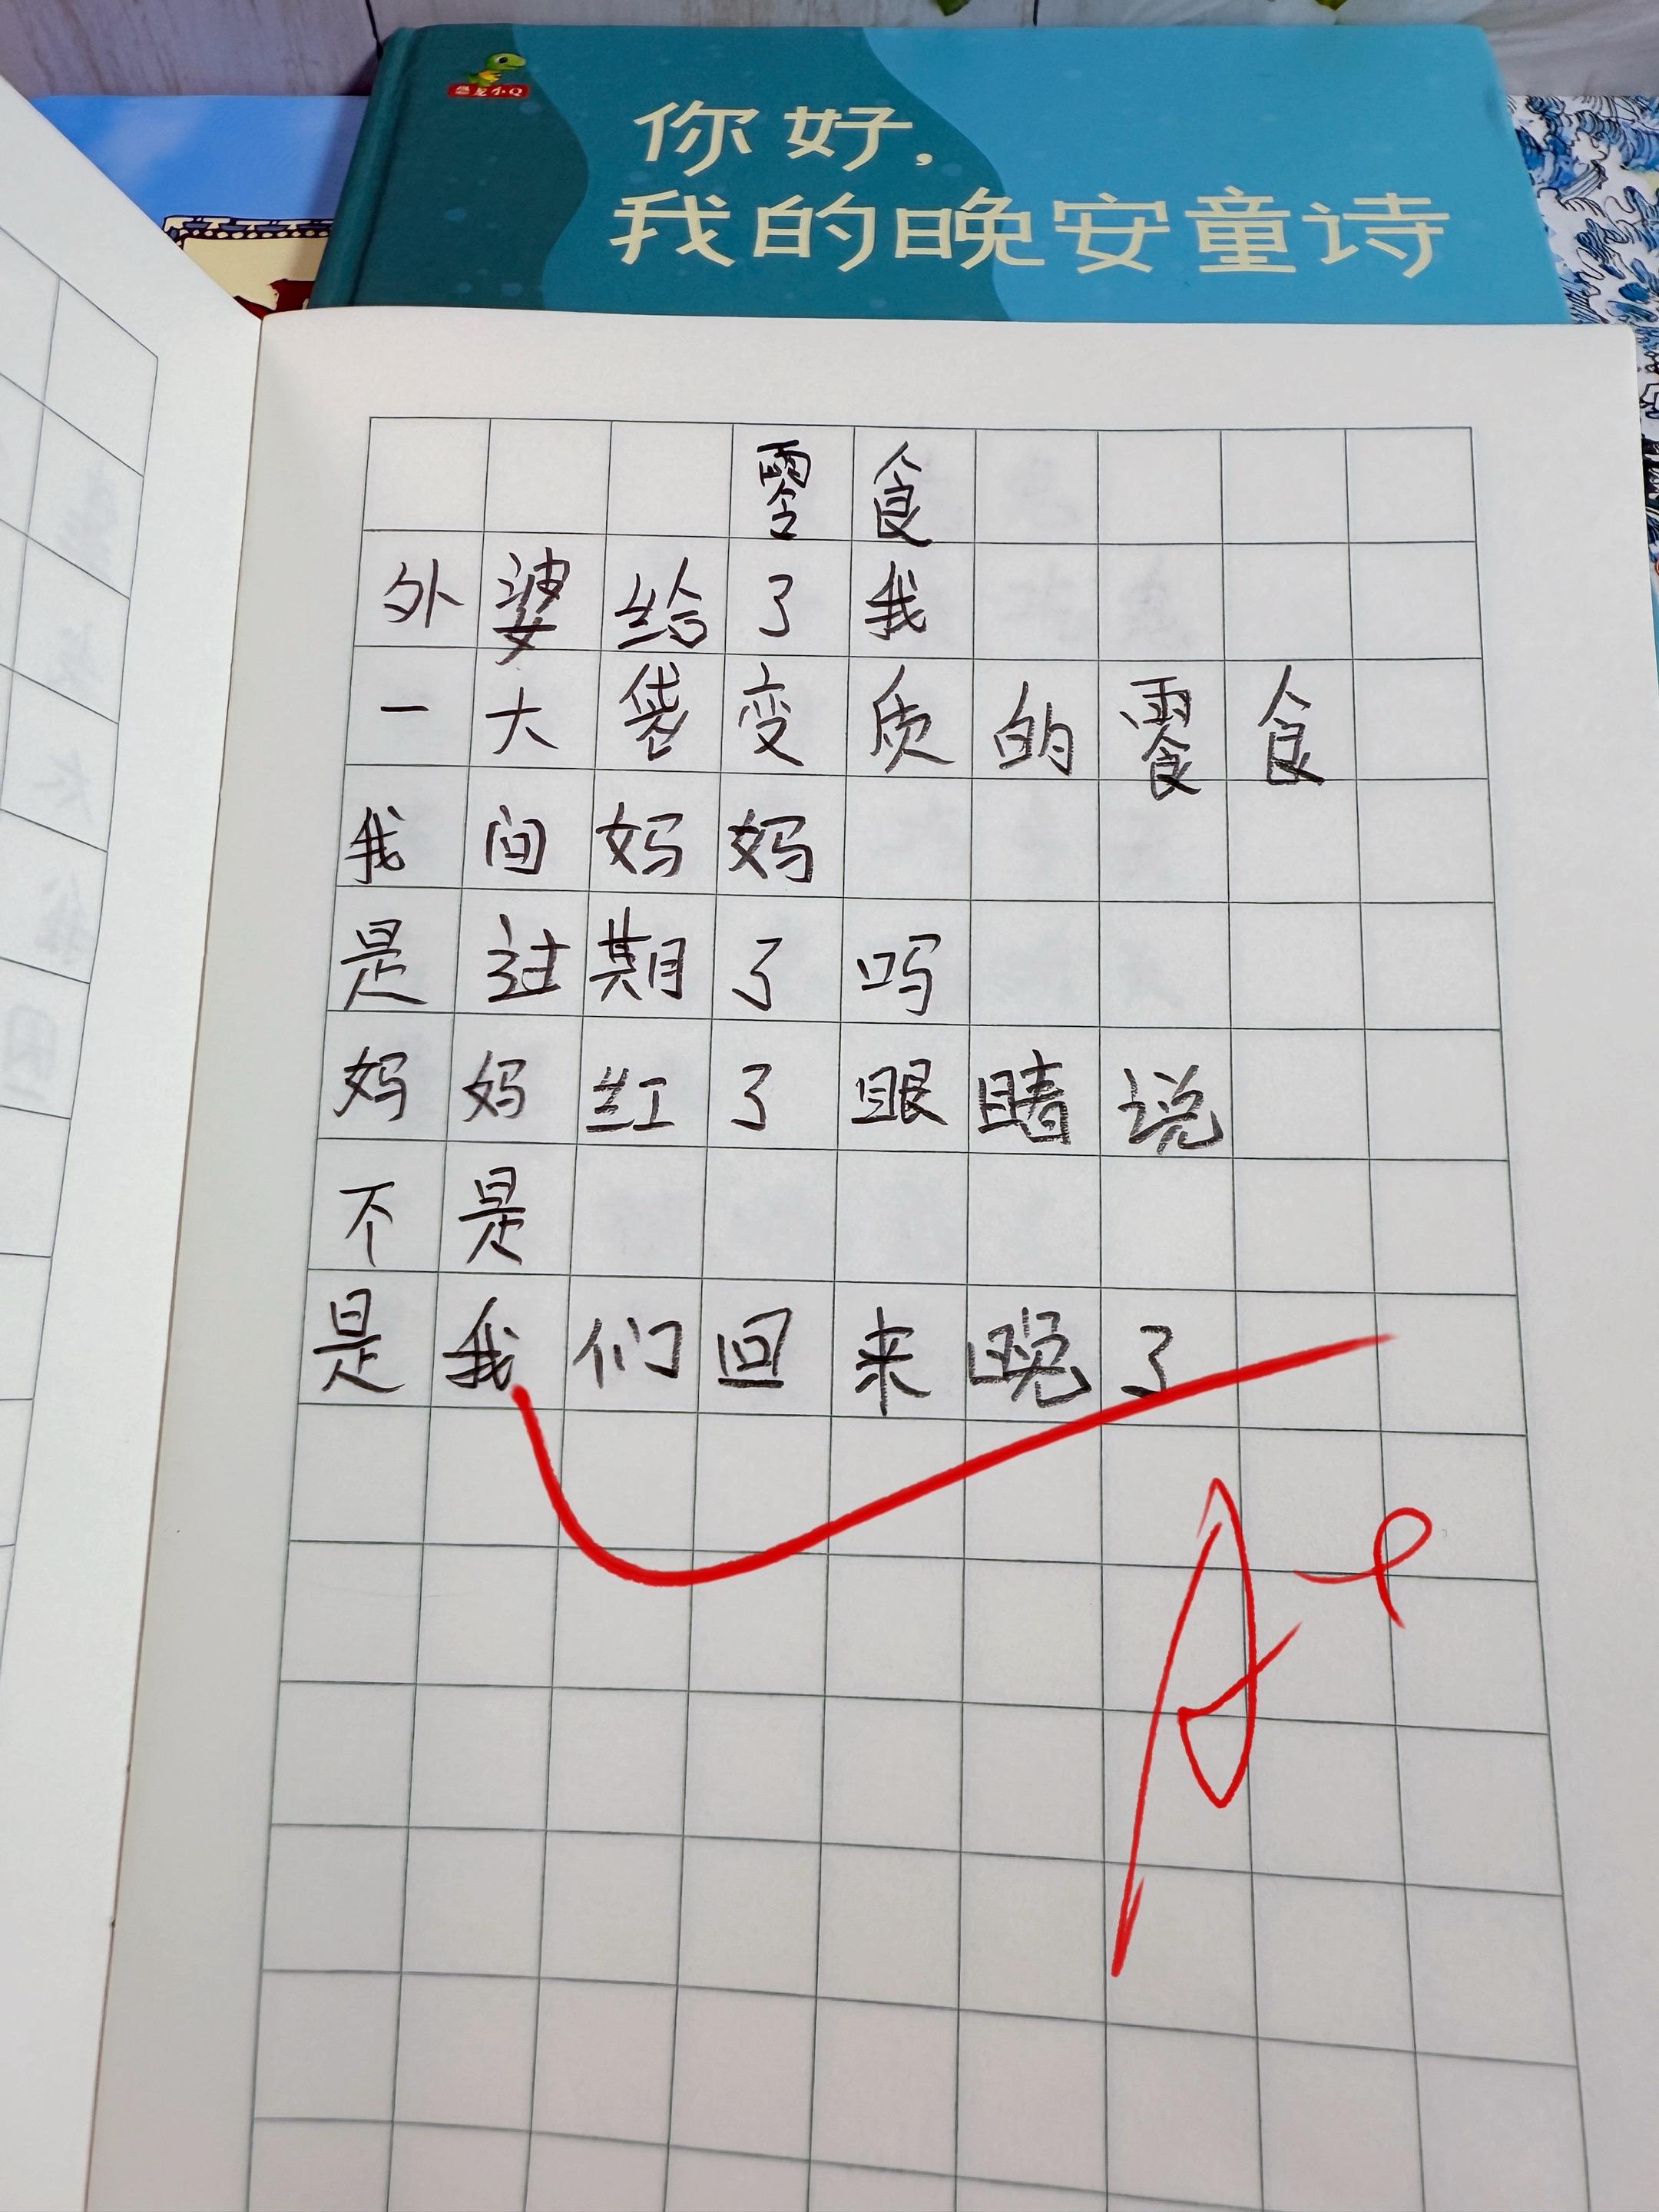 恐龙小Q
你好,
我的晚安童诗
零食
外婆给了我
一大袋变质的零食
我问妈妈
是过期了吗
妈妈红了眼睛说
不是
是我们回来晚了
A+